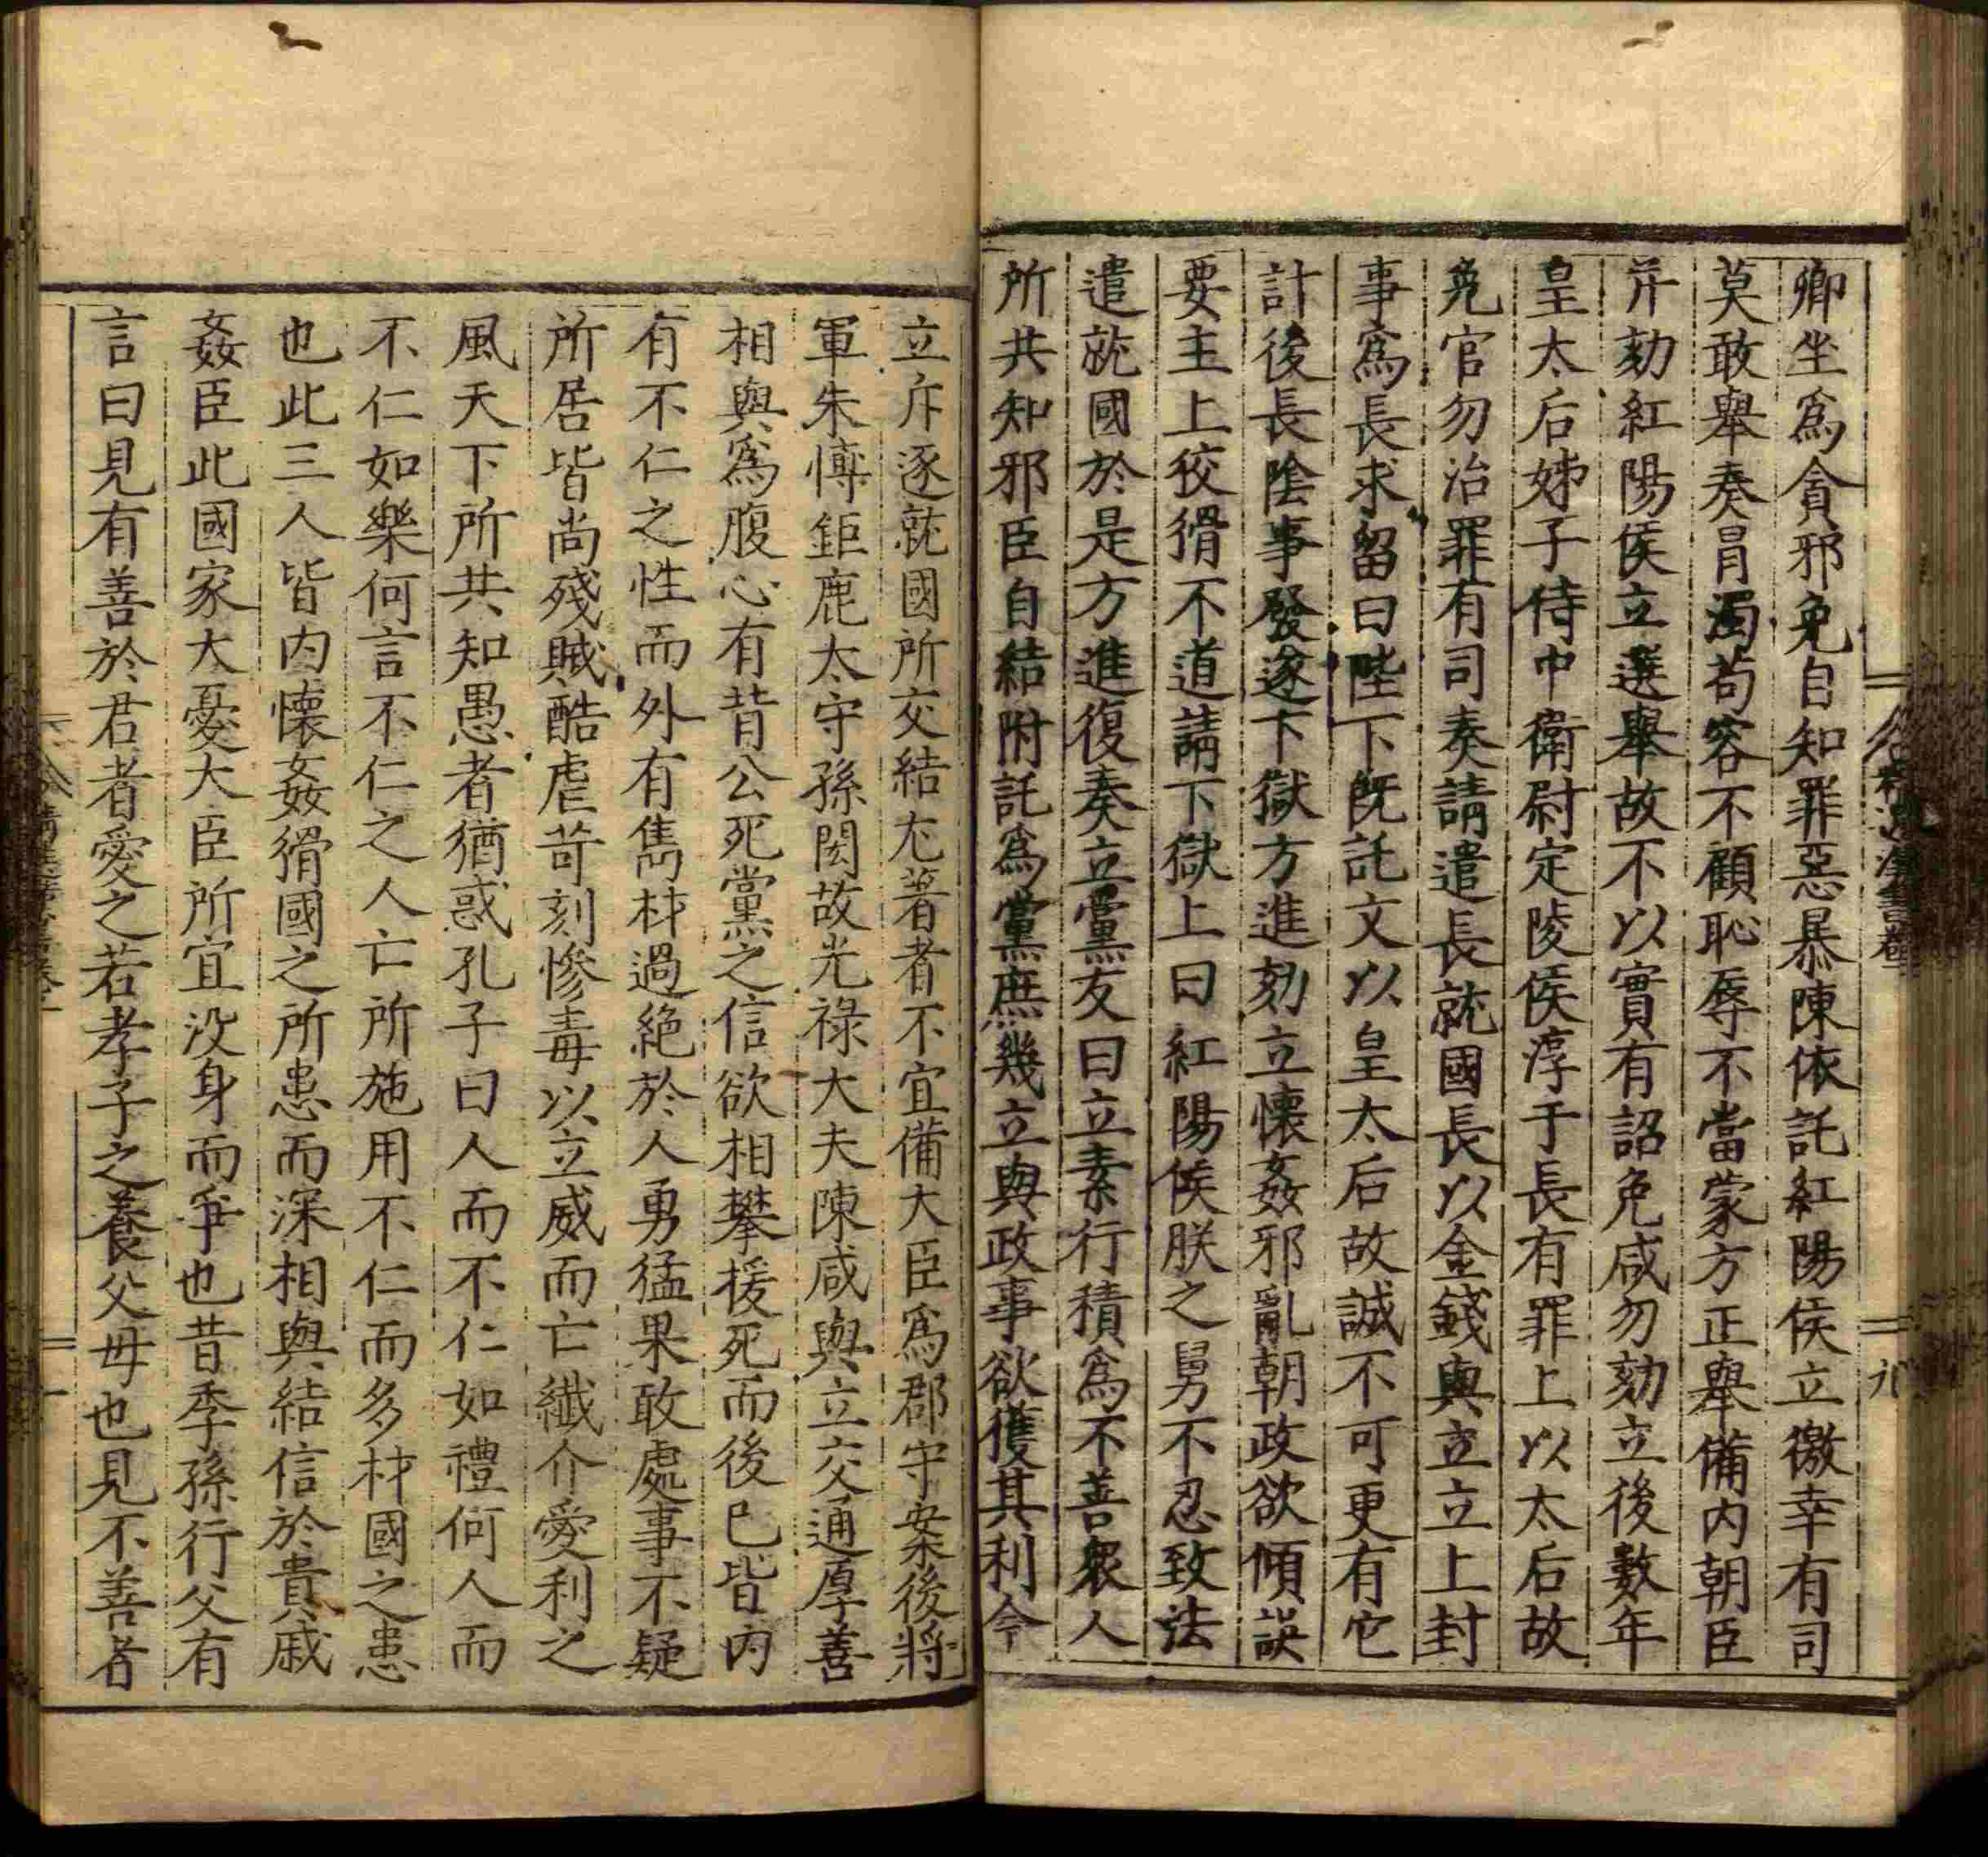 卿坐爲貪邪免自知罪惡暴陳依託紅陽侯立徼幸有司
莫敢舉奏冐濁苟容不顧恥辱不當蒙方正舉備内朝臣
并劾紅陽侯立選舉故不以實有詔免咸勿劾立後數年
皇太后姊子侍中衛尉定陵侯淳于長有罪上以太后故
免官勿治罪有司奏請遣長就國長以金錢與立立上封
事爲長求留曰陛下旣託文以皇太后故誠不可更有它
計後長陰事發遂下獄方進劾立懷姦邪亂朝政欲傾誤
要主上狡猾不道請下獄上曰紅陽侯朕之舅不忍致法
遣就國於是方進復奏立黨友曰立素行積爲不善衆人
所共知邪臣自結附託爲黨庶幾立與政事欲獲其利今
立斥逐就國所交結尤著者不宜備大臣爲郡守案後將
軍朱博鉅鹿太守孫閎故光禄大夫陳咸與立交通厚善
相與爲腹心有背公死黨之信欲相攀援死而後已皆内
有不仁之性而外有雋材過絶於人勇猛果敢處事不疑
所居皆尚殘賊酷虐苛刻慘毒以立威而亡纖介愛利之
風天下所共知愚者猶惑孔子曰人而不仁如禮何人而
不仁如樂何言不仁之人亡所施用不仁而多材國之患
也此三人皆内懷姦猾國之所患而深相與結信於貴戚
姦臣此國家大憂大臣所宜没身而爭也昔季孫行父有
言曰見有善於君者愛之若孝子之養父母也見不善者